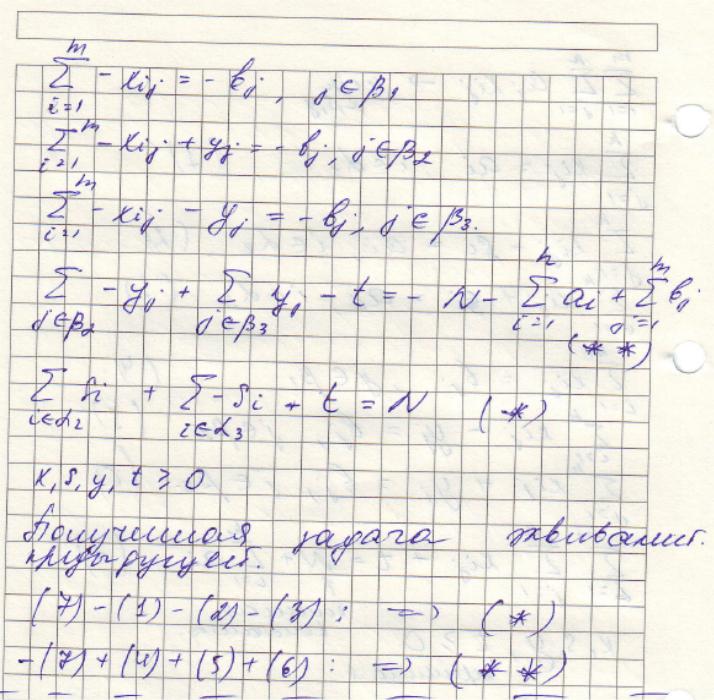 ∑_{i=1}^{m} - x_{ij} = - b_j, j ∈ β_1
∑_{i=1}^{m} - x_{ij} + y_j = - b_j, j ∈ β_2
∑_{i=1}^{m} - x_{ij} - y_j = - b_j, j ∈ β_3.
∑_{j∈β_2} - y_j + ∑_{j∈β_3} y_j - t = - N - ∑_{i=1}^{n} a_i + ∑_{j=1}^{m} b_j
(* *)
∑_{i∈α_2} s_i + ∑_{i∈α_3} - s_i + t = N (*)
x, s, y, t ≥ 0
Полученная задача эквивалент.
предыдущей.
(7) - (1) - (2) - (3) : => (*)
- (7) + (4) + (5) + (6) : => (* *)